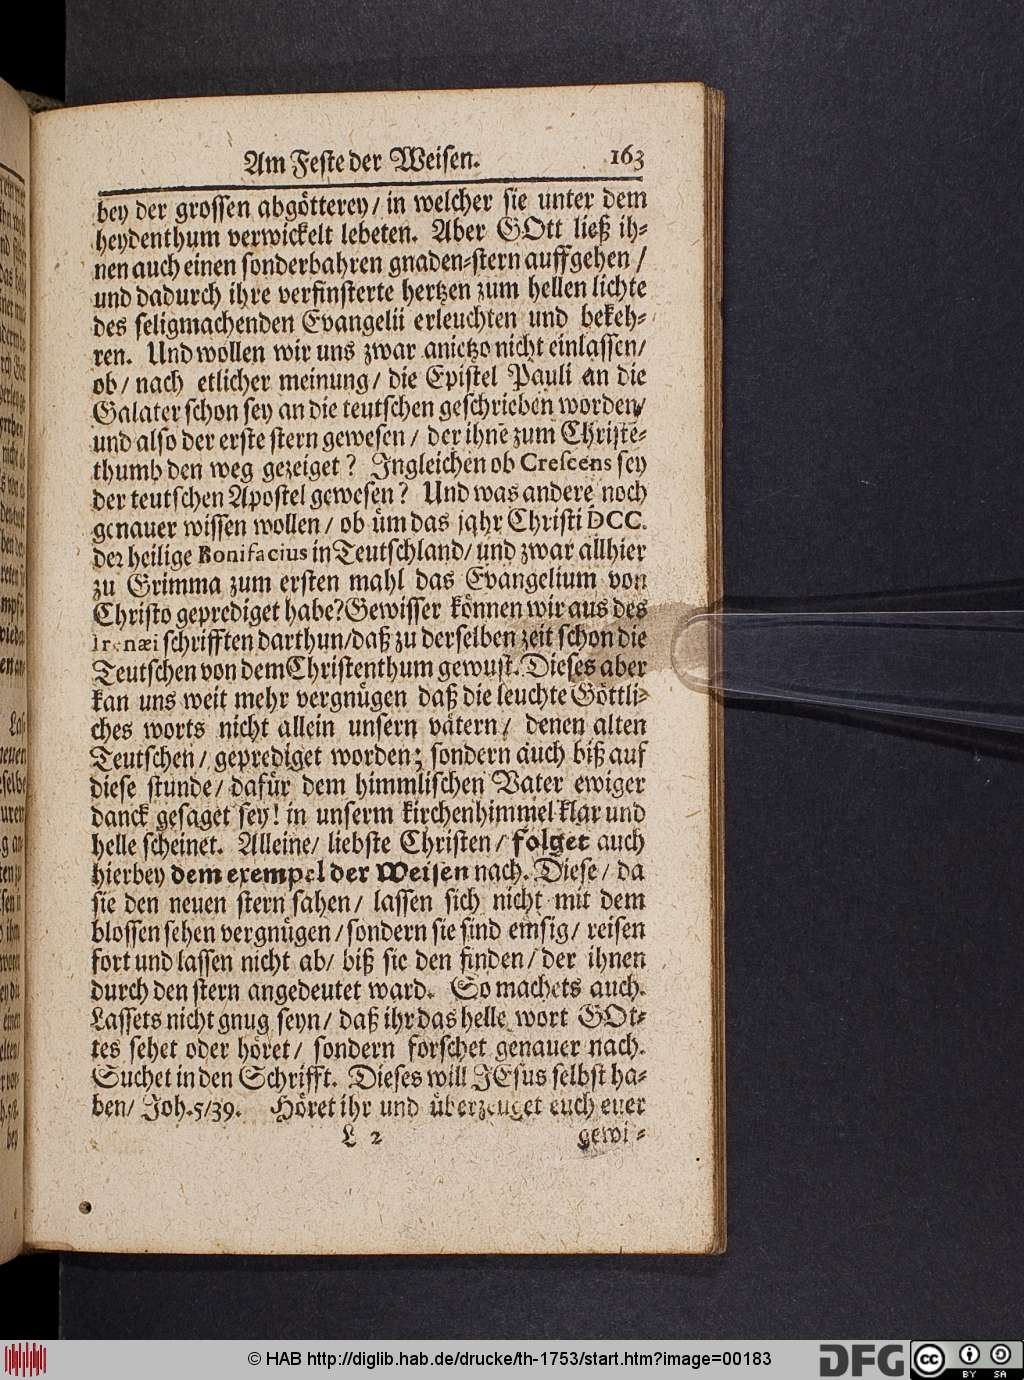 Am Feste der Weisen. 163
bey der grossen abgötterey/ in welcher sie unter dem
heydenthum verwickelt lebeten. Aber GOtt ließ ih-
nen auch einen sonderbahren gnaden-stern auffgehen /
und dadurch ihre verfinsterte hertzen zum hellen lichte
des seligmachenden Evangelii erleuchten und bekeh-
ren. Und wollen wir uns zwar anietzo nicht einlassen/
ob/ nach etlicher meinung/ die Epistel Pauli an die
Galater schon sey an die teutschen geschrieben worden/
und also der erste stern gewesen / der ihnē zum Christē-
thumb den weg gezeiget? Ingleichen ob Crescens sey
der teutschen Apostel gewesen? Und was andere noch
genauer wissen wollen / ob üm das jahr Christi DCC.
der heilige Bonifacius in Teutschland/ und zwar allhier
zu Grimma zum ersten mahl das Evangelium von
Christo geprediget habe? Gewisser können wir aus des
Irenæi schrifften darthun/ daß zu derselben zeit schon die
Teutschen von dem Christenthum gewust. Dieses aber
kan uns weit mehr vergnügen daß die leuchte Göttli-
ches worts nicht allein unsern vätern/ denen alten
Teutschen/ geprediget worden; sondern auch biß auf
diese stunde/ dafür dem himmlischen Vater ewiger
danck gesaget sey! in unserm kirchenhimmel klar und
helle scheinet. Alleine/ liebste Christen/ folget auch
hierbey dem exempel der Weisen nach. Diese/ da
sie den neuen stern sahen/ lassen sich nicht mit dem
blossen sehen vergnügen/ sondern sie sind emsig/ reisen
fort und lassen nicht ab/ biß sie den finden/ der ihnen
durch den stern angedeutet ward. So machets auch.
Lassets nicht gnug seyn/ daß ihr das helle wort GOt-
tes sehet oder höret/ sondern forschet genauer nach.
Suchet in den Schrifft. Dieses will JEsus selbst ha-
ben/ Joh. 5/39. Höret ihr und überzeuget euch euer
L 2 gewi-
© HAB http://diglib.hab.de/drucke/th-1753/start.htm?image=00183
DFG cc BY SA